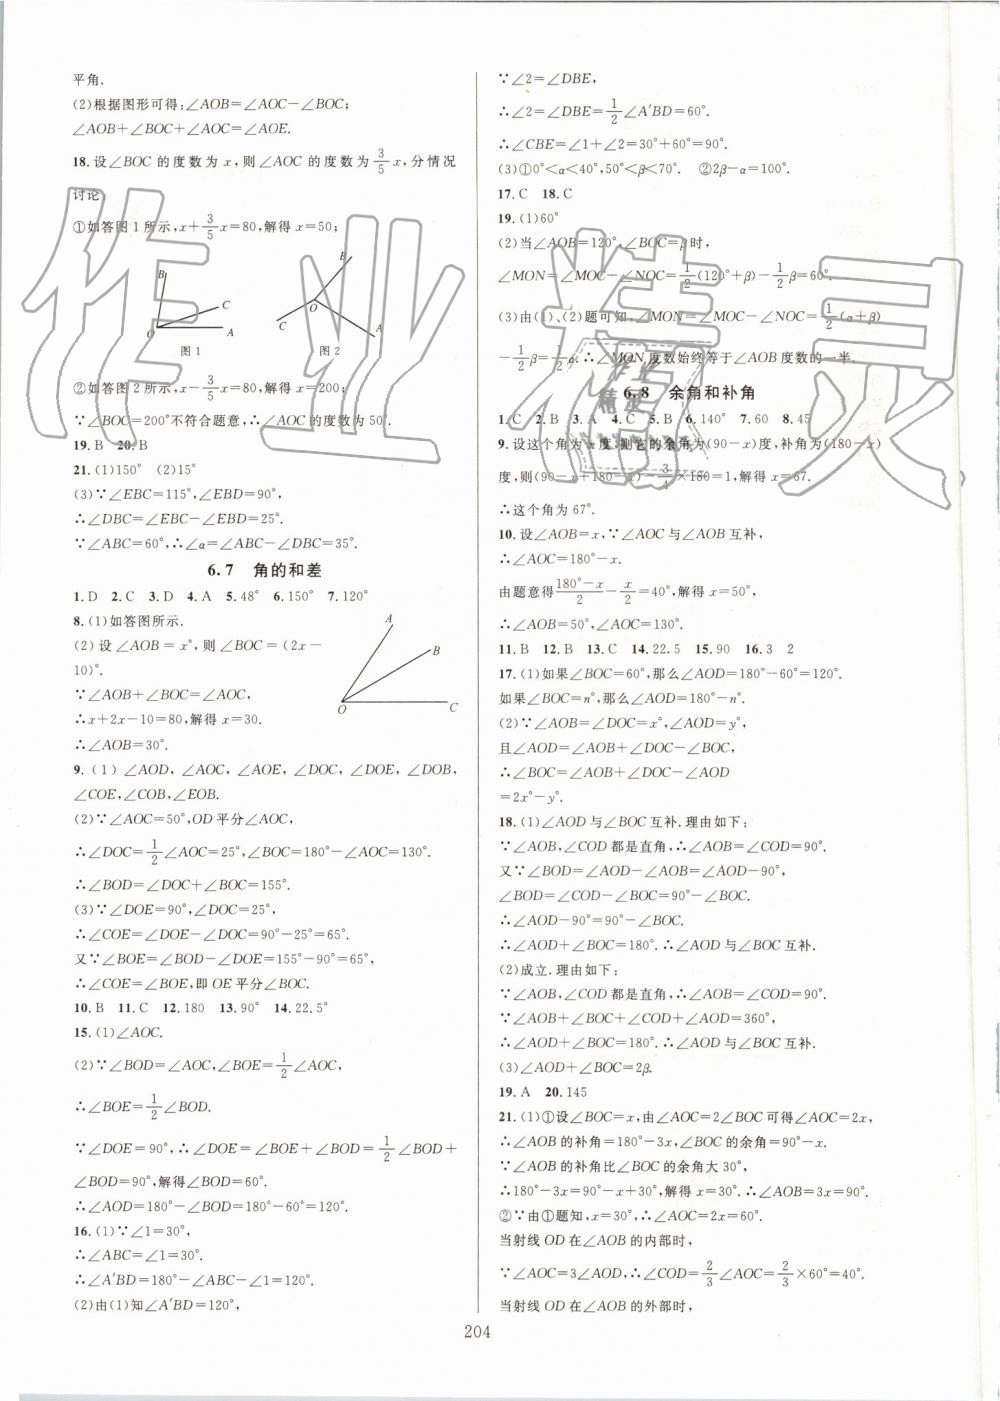 平角.
(2)根据图形可得:∠AOB=∠AOC-∠BOC;
∠AOB+∠BOC+∠AOC=∠AOE.
18.设∠BOC的度数为x,则∠AOC的度数为3/5x,分情况
讨论:
①如答图1所示,x+3/5x=80,解得x=50;
B
C
O
A
图1
B
O
C
A
图2
②如答图2所示,x-3/5x=80,解得x=200;
∵∠BOC=200°不符合题意,∴∠AOC的度数为50°.
19.B 20.B
21.(1)150° (2)15°
(3)∵∠EBC=115°,∠EBD=90°,
∴∠DBC=∠EBC-∠EBD=25°.
∵∠ABC=60°,∴∠α=∠ABC-∠DBC=35°.
6.7 角的和差
1.D 2.C 3.D 4.A 5.48° 6.150° 7.120°
8.(1)如答图所示.
(2)设∠AOB=x°,则∠BOC=(2x-
10)°.
∵∠AOB+∠BOC=∠AOC,
∴x+2x-10=80,解得x=30.
∴∠AOB=30°.
A
B
O
C
9.(1)∠AOD,∠AOC,∠AOE,∠DOC,∠DOE,∠DOB,
∠COE,∠COB,∠EOB.
(2)∵∠AOC=50°,OD平分∠AOC,
∴∠DOC=1/2∠AOC=25°,∠BOC=180°-∠AOC=130°.
∴∠BOD=∠DOC+∠BOC=155°.
(3)∵∠DOE=90°,∠DOC=25°,
∴∠COE=∠DOE-∠DOC=90°-25°=65°.
又∵∠BOE=∠BOD-∠DOE=155°-90°=65°,
∴∠COE=∠BOE,即OE平分∠BOC.
10.B 11.C 12.180 13.90° 14.22.5°
15.(1)∠AOC.
(2)∵∠BOD=∠AOC,∠BOE=1/2∠AOC,
∴∠BOE=1/2∠BOD.
∵∠DOE=90°,∴∠DOE=∠BOE+∠BOD=1/2∠BOD+
∠BOD=90°,解得∠BOD=60°.
∴∠AOD=180°-∠BOD=180°-60°=120°.
16.(1)∵∠1=30°,
∴∠ABC=∠1=30°.
∴∠A′BD=180°-∠ABC-∠1=120°.
(2)由(1)知∠A′BD=120°,
∵∠2=∠DBE,
∴∠2=∠DBE=1/2∠A′BD=60°.
∴∠CBE=∠1+∠2=30°+60°=90°.
(3)①0°<α<40°,50°<β<70°. ②2β-α=100°.
17.C 18.C
19.(1)60°
(2)当∠AOB=120°,∠BOC=β时,
∠MON=∠MOC-∠NOC=1/2(120°+β)-1/2β=60°.
(3)由(1)、(2)题可知:∠MON=∠MOC-∠NOC=1/2(α+β)
-1/2β=1/2α.∴∠MON度数始终等于∠AOB度数的一半.
6.8 余角和补角
1.C 2.B 3.A 4.C 5.B 6.140° 7.60 8.45
9.设这个角为x度,则它的余角为(90-x)度,补角为(180-x)
度,则(90-x+180-x)-3/4×180=1,解得x=67.
∴这个角为67°.
10.设∠AOB=x,∵∠AOC与∠AOB互补,
∴∠AOC=180°-x.
由题意得(180°-x)/2-x/2=40°,解得x=50°,
∴∠AOB=50°,∠AOC=130°.
11.B 12.B 13.C 14.22.5 15.90 16.3 2
17.(1)如果∠BOC=60°,那么∠AOD=180°-60°=120°.
如果∠BOC=n°,那么∠AOD=180°-n°.
(2)∵∠AOB=∠DOC=x°,∠AOD=y°,
且∠AOD=∠AOB+∠DOC-∠BOC,
∴∠BOC=∠AOB+∠DOC-∠AOD
=2x°-y°.
18.(1)∠AOD与∠BOC互补.理由如下:
∵∠AOB,∠COD都是直角,∴∠AOB=∠COD=90°.
又∵∠BOD=∠AOD-∠AOB=∠AOD-90°,
∠BOD=∠COD-∠BOC=90°-∠BOC.
∴∠AOD-90°=90°-∠BOC.
∴∠AOD+∠BOC=180°.∴∠AOD与∠BOC互补.
(2)成立.理由如下:
∵∠AOB,∠COD都是直角,∴∠AOB=∠COD=90°.
∵∠AOB+∠BOC+∠COD+∠AOD=360°,
∴∠AOD+∠BOC=180°.∴∠AOD与∠BOC互补.
(3)∠AOD+∠BOC=2β.
19.A 20.145
21.(1)①设∠BOC=x,由∠AOC=2∠BOC可得∠AOC=2x,
∴∠AOB的补角=180°-3x,∠BOC的余角=90°-x.
∵∠AOB的补角比∠BOC的余角大30°,
∴180°-3x=90°-x+30°,解得x=30°.∴∠AOB=3x=90°.
②∵由①题知,x=30°,∴∠AOC=2x=60°.
当射线OD在∠AOB的内部时,
∵∠AOC=3∠AOD,∴∠COD=2/3∠AOC=2/3×60°=40°.
当射线OD在∠AOB的外部时,
204
作业精灵
作业
精灵